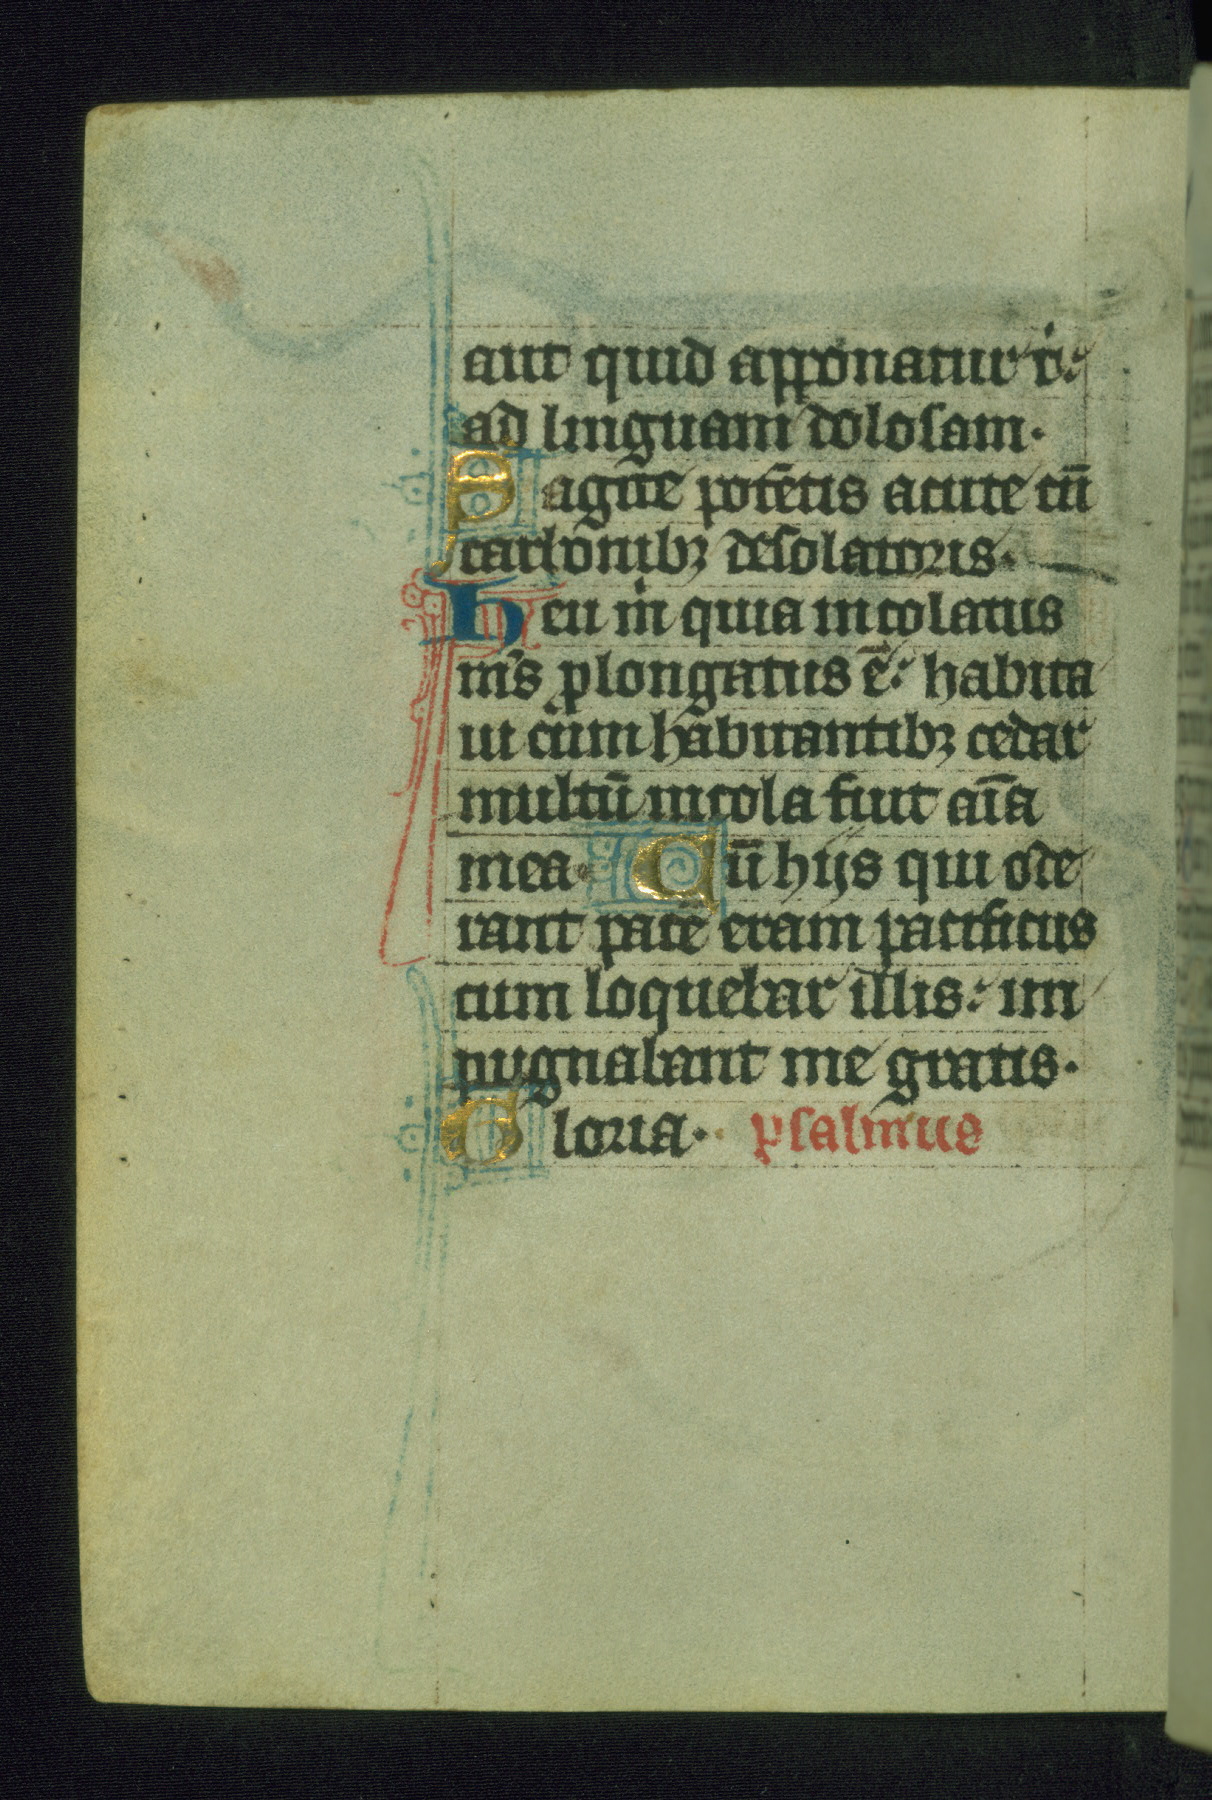 aut quid apponatur t̄:
ad linguam dolosam.
Sagitte potētis acute cū
carbonibꝫ desolatoris.
Heu m̄ quia incolatus
m̄s ꝓlongatus ē: habita
ui cum habitantibꝫ cedar
multū incola fuit aīa
mea Cū hijs qui ode
rant pacē eram pacificus
cum loquebar illis: im
pugnabant me gratis.
Gloria. psalmus